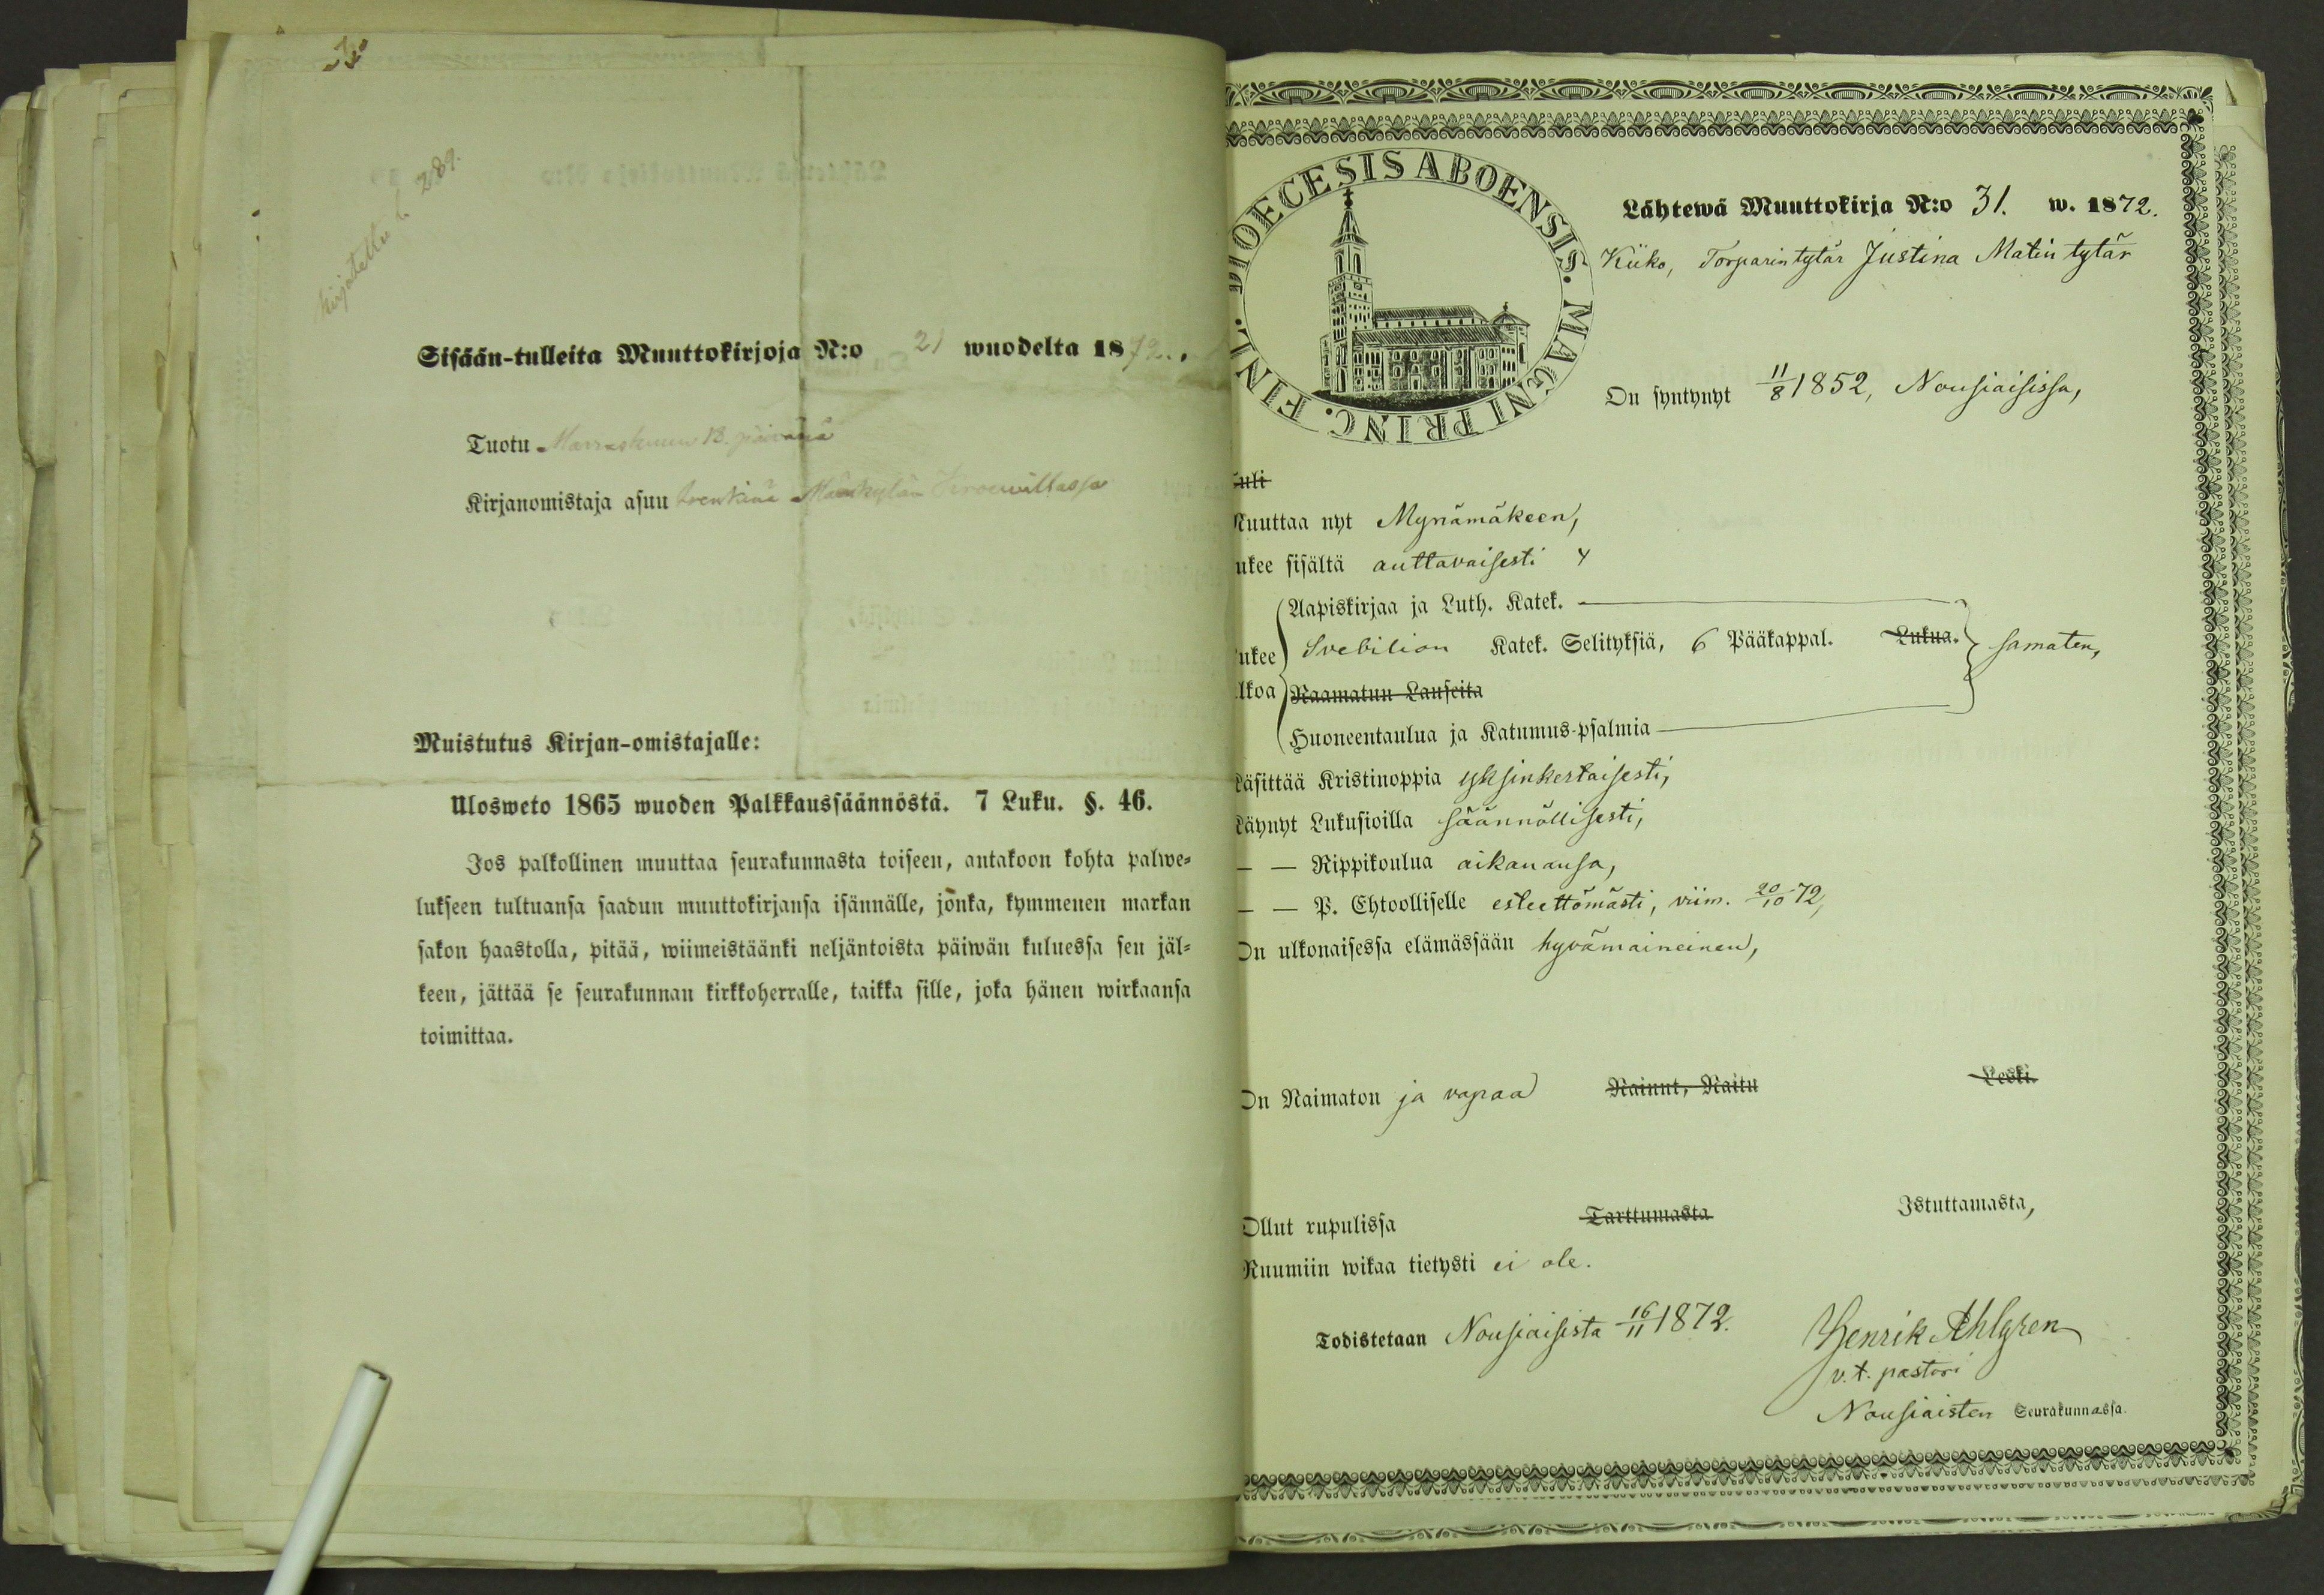 kirjotettu s. 289.
Sisään-tulleita Muuttokirjoja N:o 21 wuodelta 1872.
Tuotu Marraskuun 13. päivänä
Kirjanomistaja asuu trenkinä
Muistutus Kirjan-omistajalle:
Ulosweto 1865 wuoden Palkkaussäännöstä. 7 Luku. §. 46.
Jos palkollinen muuttaa seurakunnasta toiseen, antakoon kohta palwe-
lukseen tultuansa saadun muuttokirjansa isännälle, jonka, kymmenen markan
sakon haastolla, pitää, wiimeistäänki neljäntoista päiwän kuluessa sen jäl-
keen, jättää se seurakunnan kirkkoherralle, taikka sille, joka hänen wirkaansa
toimittaa.
DIOECESIS ABOENSIS. MAGNI PRINC. FINL.
Lähtewä Muuttokirja N:o 31. w. 1872.
Kiiko, Torparin tytär Justina Matin tytär
On syntynyt 11/8 1852, Nousiaisissa,
uli
Muuttaa nyt Mynämäkeen,
ukee sisältä auttavaisesti
Aapiskirjaa ja Luth. Katek.
ukee Svebilion Katek. Selityksiä, 6 Pääkappal. Lukua. samaten,
lkoa Raamatun Lauseita
Huoneentaulua ja Katumus-psalmia
Käsittää Kristinoppia yksinkertaisesti,
Käynyt Lukusioilla säännöllisesti,
— — Rippikoulua aikanansa,
— — P. Ehtoolliselle esteettömästi, viim. 20/10 72,
On ulkonaisessa elämässään hyvämaineinen,
On Naimaton ja vapaa Nainut, Naitu Leski.
Ollut rupulissa Tarttumasta Istuttamasta,
Ruumiin wikaa tietysti ei ole.
Todistetaan Nousiaisista 16/11 1872. Henrik Ahlgren
v.t. pastori
Nousiaisten Seurakunnassa.